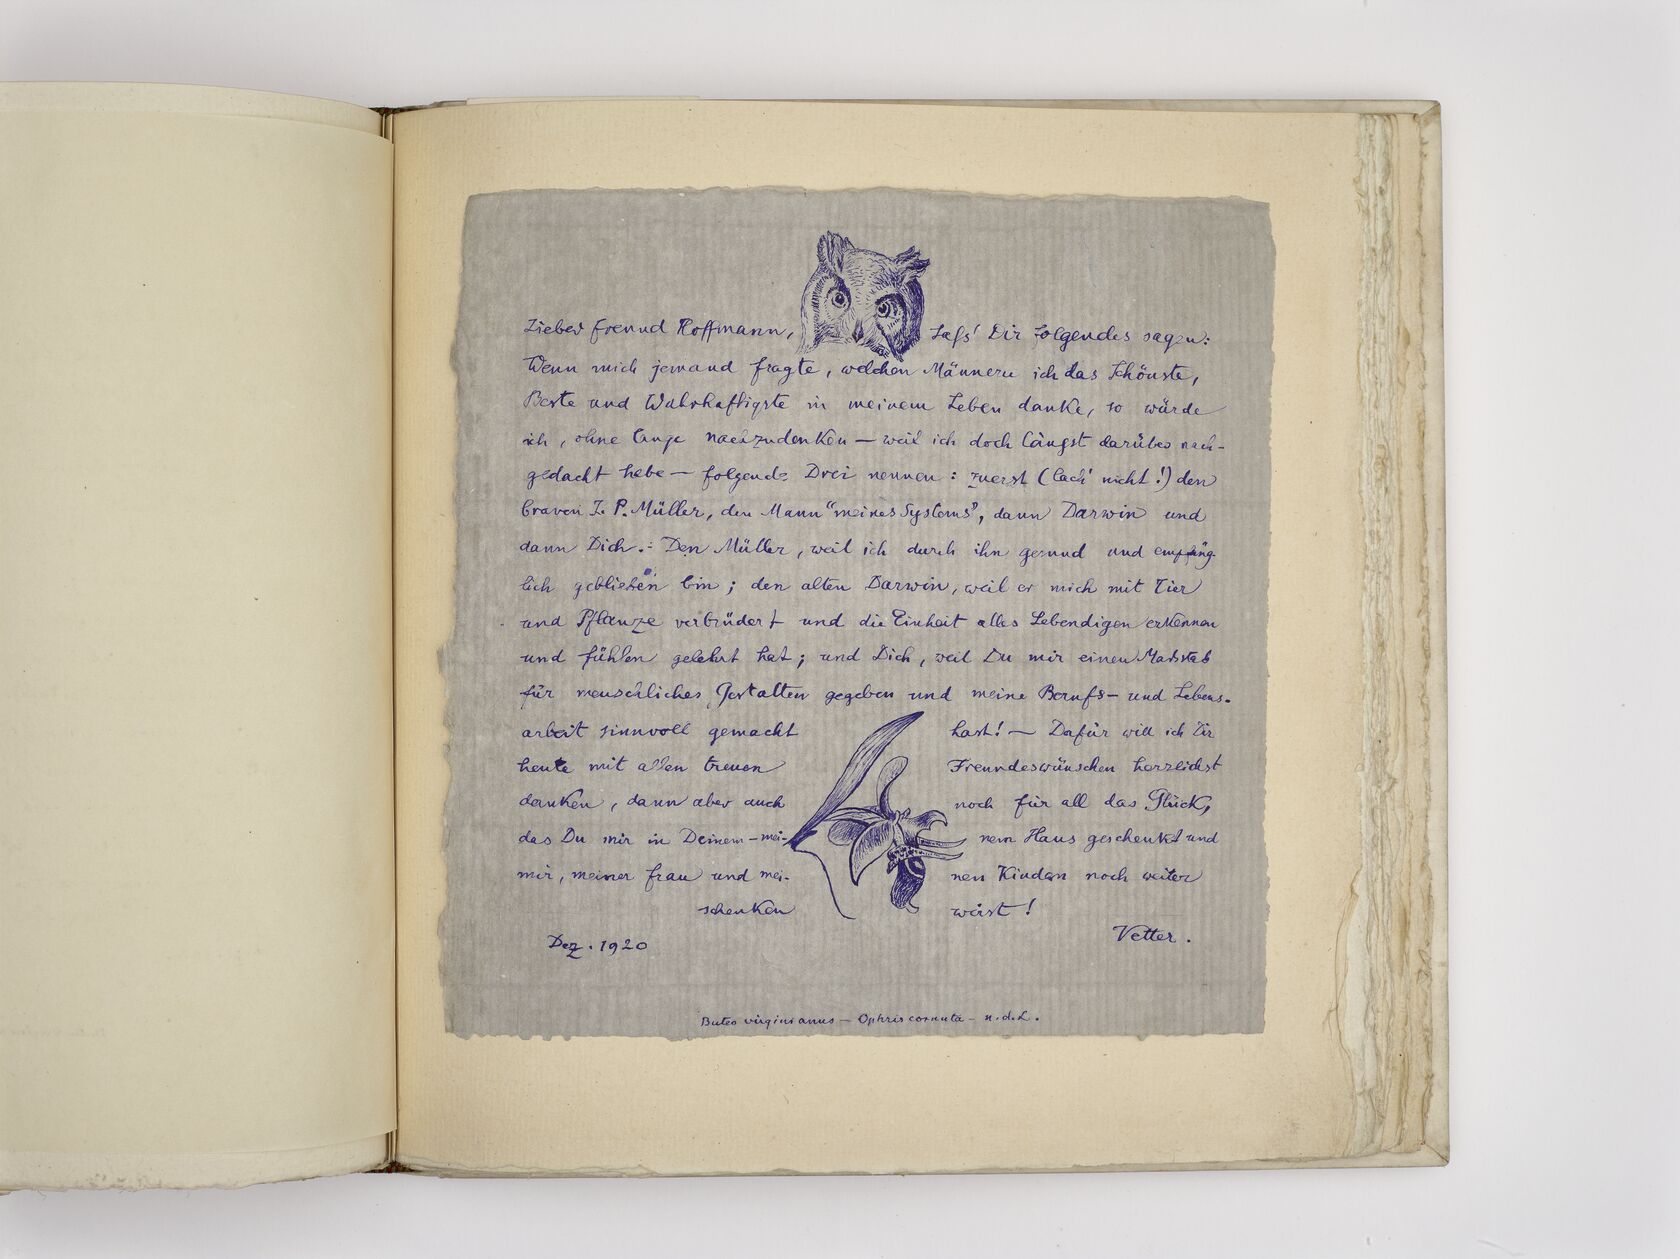 Lieber Freund Hoffmann, Lass' Dir Folgendes sagen:
Wenn mich jemand fragte, welchen Männern ich das Schönste,
Beste und Wahrhaftigste in meinem Leben danke, so würde
ich, ohne lange nachzudenken — weil ich doch längst darüber nach-
gedacht habe — folgende Drei nennen: zuerst (lach' nicht!) den
braven I. P. Müller, den Mann "meines Systems", dann Darwin und
dann Dich. Den Müller, weil ich durch ihn gesund und empfäng-
lich geblieben bin; den alten Darwin, weil er mich mit Tier
und Pflanze verbrüdert und die Einheit alles Lebendigen erkennen
und fühlen gelehrt hat; und Dich, weil Du mir einen Masstab
für menschliches Gestalten gegeben und meine Berufs- und Lebens-
arbeit sinnvoll gemacht hast! — Dafür will ich Dir
heute mit allen treuen Freundeswünschen herzlichst
danken, dann aber auch noch für all das Glück,
das Du mir in Deinem-mei- nem Haus geschenkt und
mir, meiner Frau und mei- nen Kindern noch weiter
schenken wirst!
Dez. 1920 Vetter.
Buteo virginianus — Ophris cornuta — n.d.L.